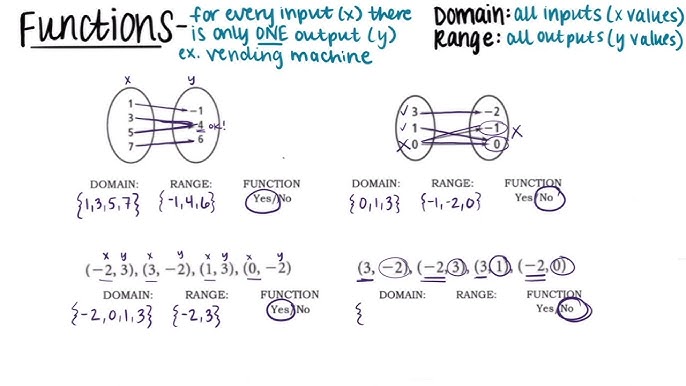 Functions - for every input (x) there
is only ONE output (y)
ex. vending machine
Domain: all inputs (x values)
Range: all outputs (y values)
x y
1 -1
3 -4 ok!
5 6
7
✓ 3 -2
✓ 1 -1 x
x 0 0
DOMAIN: RANGE: FUNCTION
{1,3,5,7} {-1,4,6} Yes/No
DOMAIN: RANGE: FUNCTION
{0,1,3} {-1,-2,0} Yes/No
x y x y x y x y
(-2, 3), (3, -2), (1, 3), (0, -2)
DOMAIN: RANGE: FUNCTION
{-2,0,1,3} {-2,3} Yes/No
(3, -2), (-2, 3), (3, 1), (-2, 0)
DOMAIN: RANGE: FUNCTION
{ Yes/No